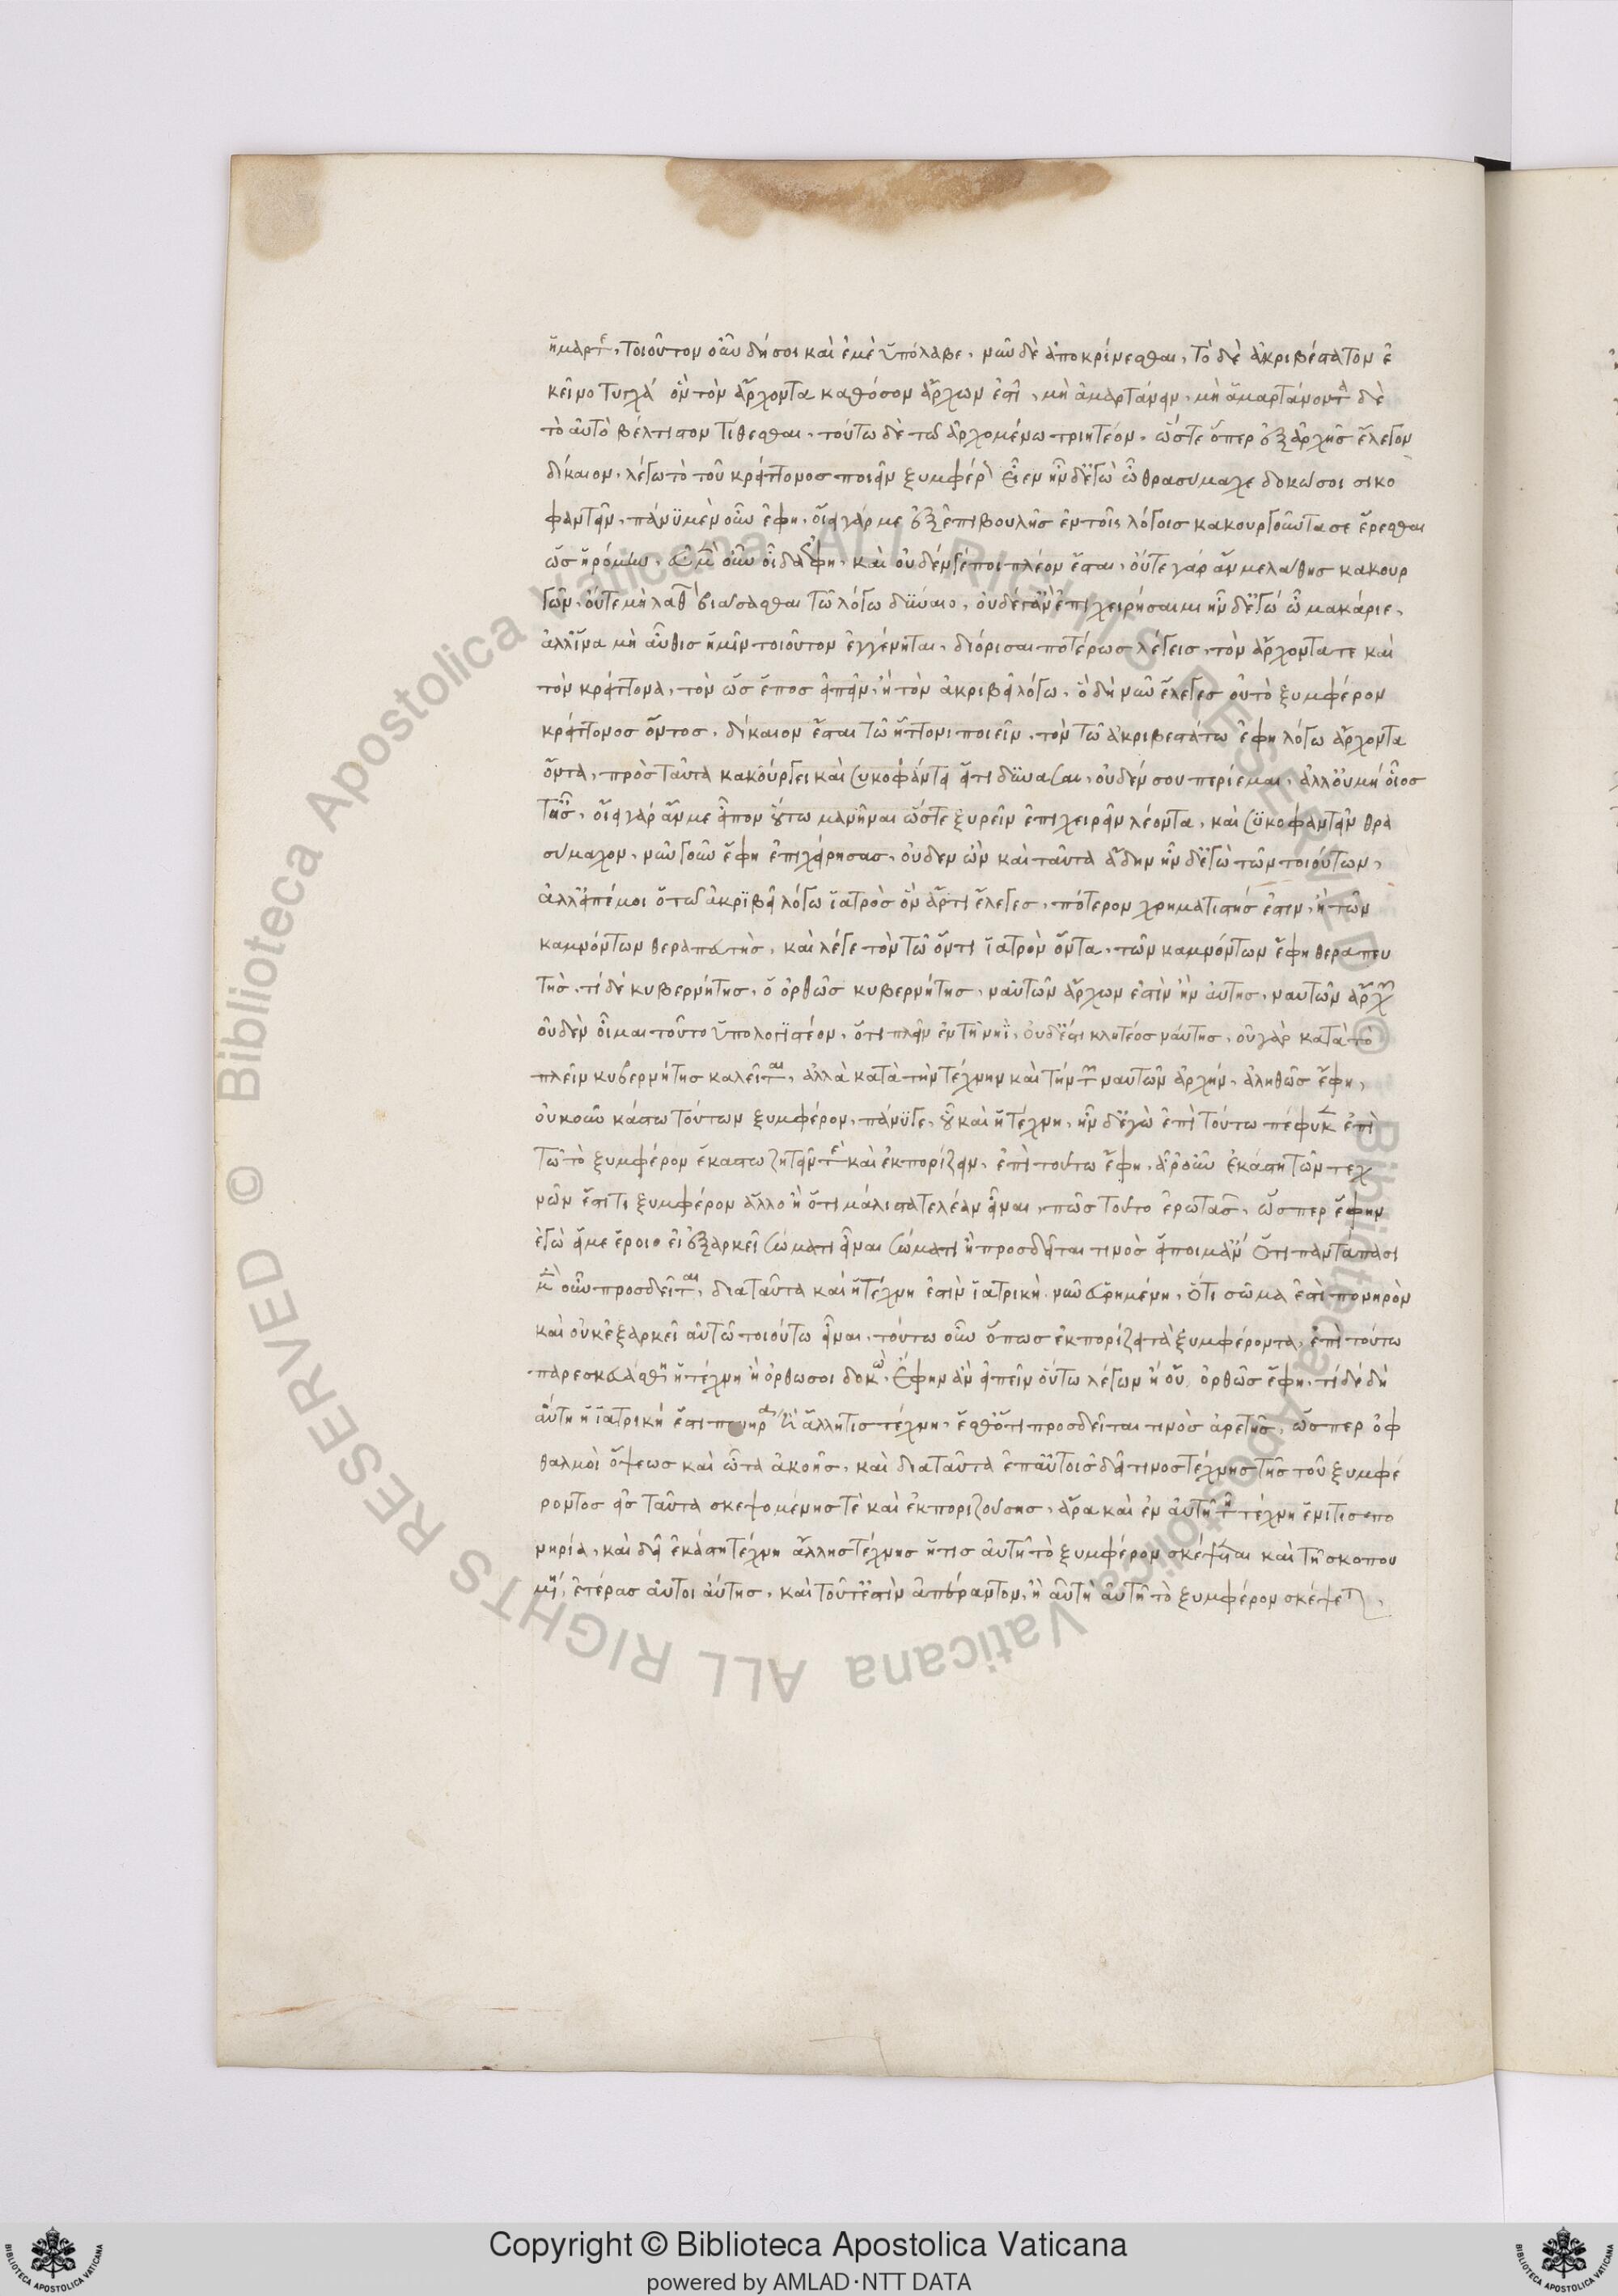 ἥμαρτε, τοιοῦτον οὖν δή σοι καὶ ἐμὲ ὑπόλαβε, νῦν δὲ ἀποκρίνεσθαι, τὸ δὲ ἀκριβέστατον ἐ
κεῖνο τυγχά ὂν τὸν ἄρχοντα καθόσον ἄρχων ἐστὶ, μὴ ἁμαρτάνειν, μὴ ἁμαρτάνοντα δὲ
τὸ αὑτῷ βέλτιστον τίθεσθαι, τούτω δὲ τῶ ἀρχομένω ποιητέον, ὥστε ὅπερ ἐξ ἀρχῆς ἔλεγον
δίκαιον, λέγω τὸ τοῦ κρείττονος ποιεῖν ξυμφέρον εἶεν ἦν δ' ἐγὼ ὦ θρασύμαχε δοκῶ σοι σικο
φαντεῖν, πάνυ μὲν οὖν ἔφη, οἴει γάρ με ἐξ ἐπιβουλῆς ἐν τοῖς λόγοις κακουργοῦντα σε ἔρεσθαι
ὡς ἠρόμην, εὖ μὲν οὖν οἶδα ἔφη, καὶ οὐδέν γέ ποι πλέον ἔσται, οὔτε γάρ ἄν με λάθης κακουρ
γῶν, οὔτε μὴ λαθ βιάσασθαι τῶ λόγω δύναιο, οὐδέ γ' ἂν ἐπιχειρήσαιμι ἦν δ' ἐγώ ὦ μακάριε,
ἀλλ' ἵνα μὴ αὖθις ἡμῖν τοιοῦτον ἐγγένηται, διόρισαι ποτέρως λέγεις, τὸν ἄρχοντα τε καὶ
τὸν κρείττονα, τὸν ὡς ἔπος εἰπεῖν, ἢ τὸν ἀκριβεῖ λόγω, ὃ δὴ νῦν ἔλεγες οὗ τὸ ξυμφέρον
κρείττονος ὄντος, δίκαιον ἔσται τῶ ἥττονι ποιεῖν, τὸν τῶ ἀκριβεστάτω ἔφη λόγω ἄρχοντα
ὄντα, πρὸς ταῦτα κακούργει καὶ συκοφάντει εἴ τι δύνασαι, οὐδέν σου περίεμαι, ἀλλ' οὐ μή οἷος
τ' ἦς, οἴει γάρ ἄν με εἶπον οὕτω μανῆναι ὥστε ξυρεῖν ἐπιχειρεῖν λέοντα, καὶ συκοφαντεῖν θρα
σύμαχον, νῦν γοῦν ἔφη ἐπιχείρησας, οὐδεν ὢν καὶ ταῦτα ἅδην ἦν δ' ἐγὼ τῶν τοιούτων,
ἀλλ' εἰπέ μοι ὅ τῶ ἀκριβεῖ λόγω ἰατρὸς ὃν ἄρτι ἔλεγες, πότερον χρηματιστής ἐστιν, ἢ τῶν
καμνόντων θεραπευτὴς, καὶ λέγε τὸν τῶ ὄντι ἰατρὸν ὄντα, τῶν καμνόντων ἔφη θεραπευ
τὴς, τί δὲ κυβερνήτης, ὁ ὀρθῶς κυβερνήτης, ναυτῶν ἄρχων ἐστὶν ἢ ναύτης, ναυτῶν ἄρχων
οὐδὲν οἶμαι τοῦτο ὑπολογιστέον, ὅτι πλεῖν ἐν τῆ νηῒ, οὐδ' ἔστι κλητέος ναύτης, οὐ γὰρ κατὰ τὸ
πλεῖν κυβερνήτης καλεῖται, ἀλλὰ κατὰ τὴν τέχνην καὶ τὴν τῶν ναυτῶν ἀρχήν, ἀληθῶς ἔφη,
οὐκοῦν κάστω τούτων ξυμφέρον, πάνυ γε, οὗ καὶ ἡ τέχνη, ἦν δ' ἐγὼ ἐπὶ τούτω πέφυκεν ἐπὶ
τῶ τὸ ξυμφέρον ἑκάστω ζητεῖν τε καὶ ἐκπορίζειν, ἐπὶ τούτω ἔφη, ἆρ' οὖν ἑκάστη τῶν τεχ
νῶν ἔστι τι ξυμφέρον ἄλλο ἢ ὅτι μάλιστα τελέαν εἶναι, πῶς τοῦτο ἐρωτᾶς, ὥσπερ ἔφην
ἐγὼ εἴ με ἔροιο εἰ ἐξαρκεῖ σώματι εἶναι σώματι ἢ προσδεῖται τινὸς εἴποιμ' ἄν ὅτι παντάπασι
μὲν οὖν προσδεῖται, δια ταῦτα καὶ ἡ τέχνη ἐστὶν ἰατρικὴ νῦν εὑρημένη, ὅτι σῶμα ἐστὶ πονηρὸν
καὶ οὐκ ἐξαρκεῖ αὐτῶ τοιούτω εἶναι, τούτω οὖν ὅπως ἐκπορίζει τὰ ξυμφέροντα, ἐπὶ τούτω
παρεσκευάσθη ἡ τέχνη ἢ ὀρθῶς σοι δοκῶ, ἔφην ἂν εἰπεῖν οὕτω λέγων ἢ οὔ, ὀρθῶς ἔφη, τί δὲ δὴ
αὐτὴ ἡ ἰατρική ἔστι πονηρα ἢ ἄλλη τις τέχνη, ἔσθ' ὅτι προσδεῖται τινὸς ἀρετῆς, ὥσπερ ὀφ
θαλμοὶ ὄψεως καὶ ὦτα ἀκοῆς, καὶ δια ταῦτα ἐπ' αὐτοῖς δεῖ τινος τέχνης τῆς τοῦ ξυμφέ
ροντος εἰς ταῦτα σκεψομένης τὲ καὶ ἐκποριζούσης, ἆρα καὶ ἐν αὐτῆ τῆ τέχνη ἔνι τις πο
νηρία, καὶ δεῖ ἑκάστη τέχνη ἄλλης τέχνης ἥτις αὐτῆ τὸ ξυμφέρον σκέψεται καὶ τῆ σκοπου
μένη, ἑτέρας αὖ τοιαύτης, καὶ τοῦτ' ἔστὶν ἀπέραντον, ἢ αὐτὴ αὑτῆ τὸ ξυμφέρον σκέψεται,
© Biblioteca Apostolica Vaticana ALL RIGHTS RESERVED © Biblioteca Apostolica Vaticana ALL RIGHTS RESERVED
Copyright © Biblioteca Apostolica Vaticana
powered by AMLAD·NTT DATA
BIBLIOTECA APOSTOLICA VATICANA
BIBLIOTECA APOSTOLICA VATICANA